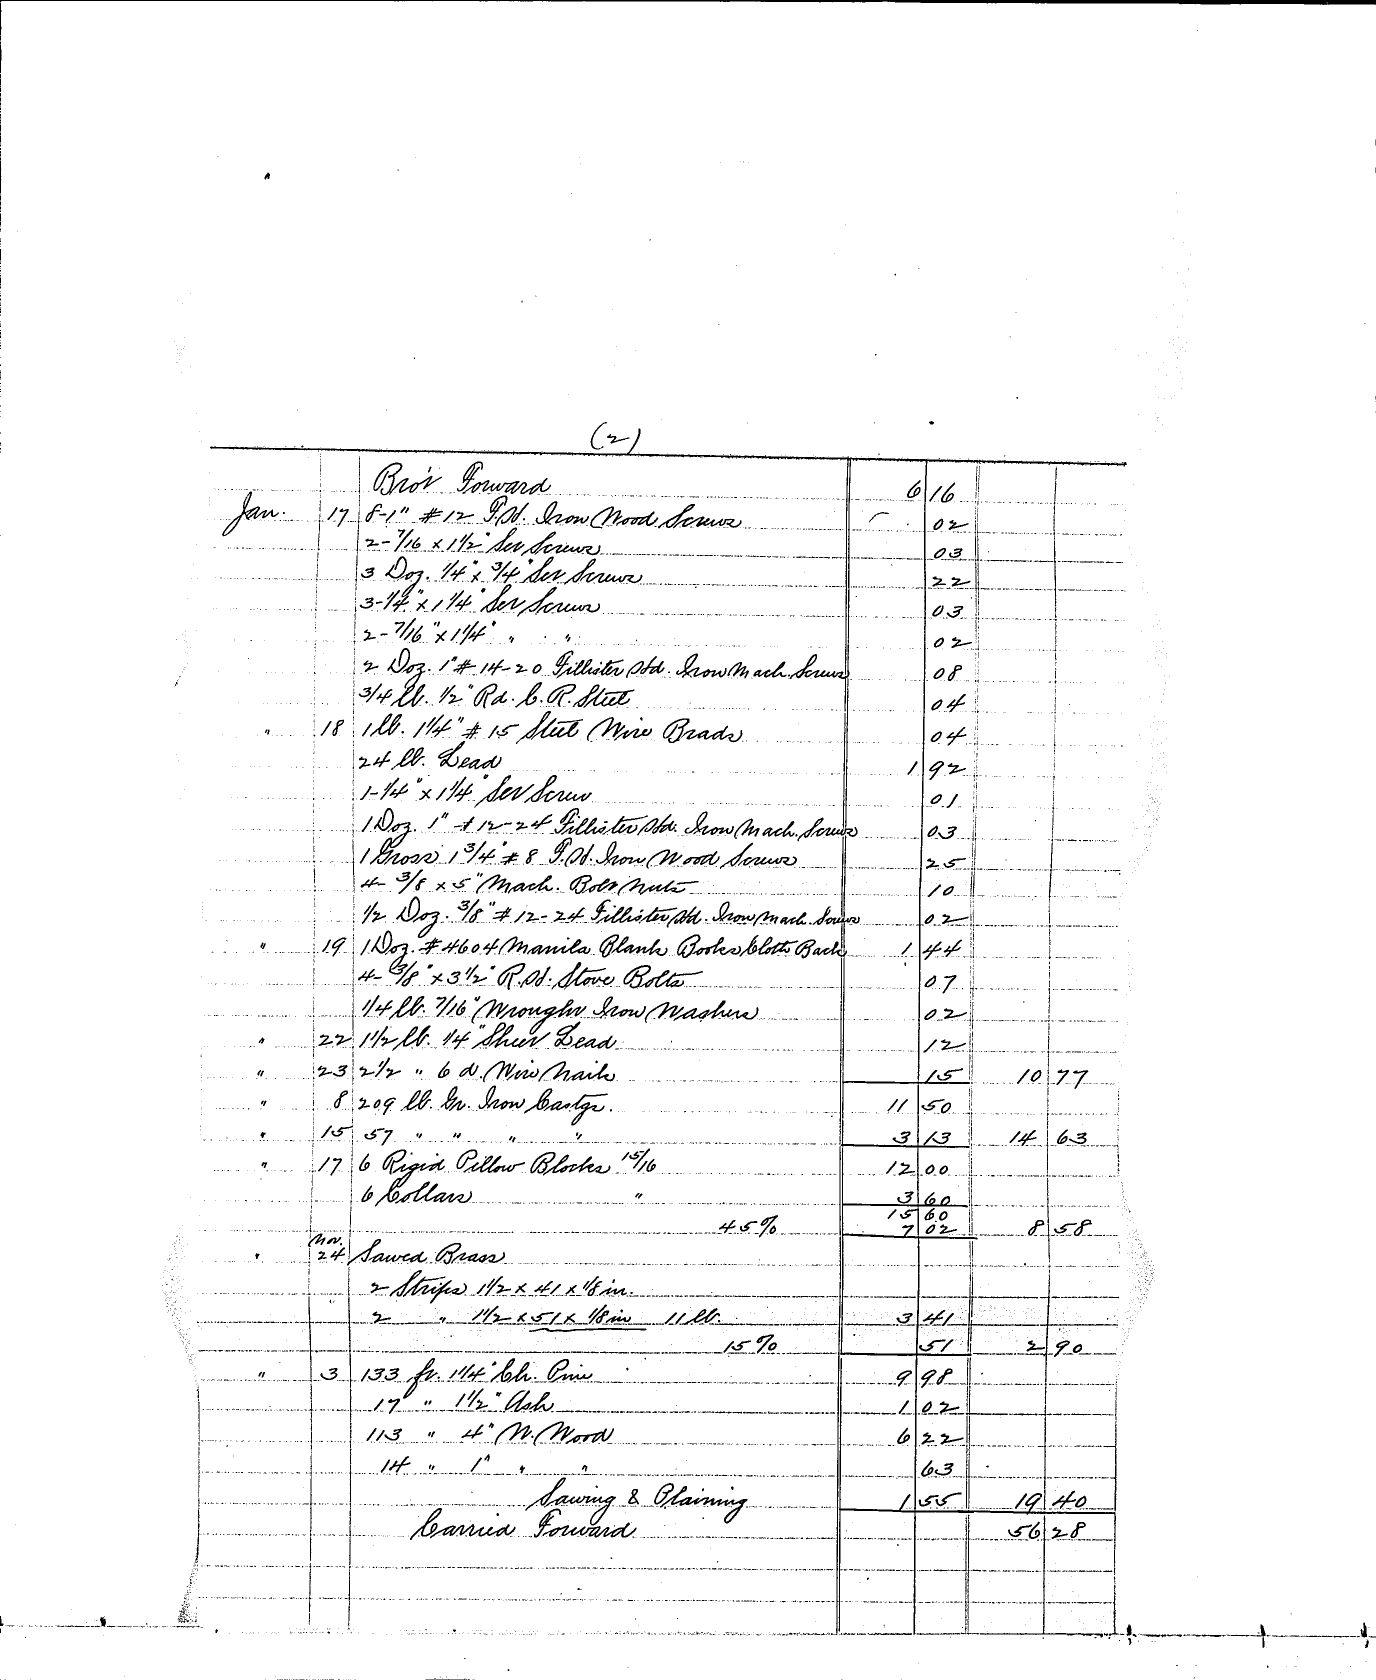 (2)
Bro't Forward 6 16
Jan. 17 8-1" #12 F.H. Iron Wood Screws 02
2-7/16 x 1 1/2" Set Screws 03
3 Doz. 1/4" x 3/4" Set Screws 22
3-1/4" x 1 1/4" Set Screws 03
2-7/16" x 1 1/4" " " 02
2 Doz. 1" # 14-20 Fillister Hd. Iron Mach. Screws 08
3/4 lb. 1/2" Rd. C. R. Steel 04
" 18 1 lb. 1 1/4" # 15 Steel Wire Brads 04
24 lb. Lead 1 92
1-1/4" x 1 1/4" Set Screw 01
1 Doz. 1" # 12-24 Fillister Hd. Iron Mach. Screws 03
1 Gross 1 3/4" # 8 F.H. Iron Wood Screws 25
4- 3/8 x 5" Mach. Bolt Nuts 10
1/2 Doz. 3/8" # 12-24 Fillister Hd. Iron Mach. Screws 02
" 19 1 Doz. #4604 Manila Blank Books Cloth Back 1 44
4- 3/8" x 3 1/2" R.H. Stove Bolts 07
1/4 lb. 7/16" Wrought Iron Washers 02
" 22 1 1/2 lb. 1/4" Sheet Lead 12
" 23 2 1/2 " 6 d. Wire Nails 15 10 77
" 8 209 lb. Gr. Iron Castgs. 11 50
" 15 57 " " " " 3 13 14 63
" 17 6 Rigid Pillow Blocks 15/16 12 00
6 Collars " 3 60
15 60
45% 7 02 8 58
Nov.
" 24 Sawed Brass
2 Strips 1 1/2 x 41 x 1/8 in.
2 " 1 1/2 x 51 x 1/8 in 11 lb. 3 41
15% 51 2 90
" 3 133 ft. 1 1/4" Ch. Pine 9 98
17 " 1 1/2" Ash 1 02
113 " 4" W. Wood 6 22
14 " 1" " " 63
Sawing & Plaining 1 55 19 40
Carried Forward 56 28